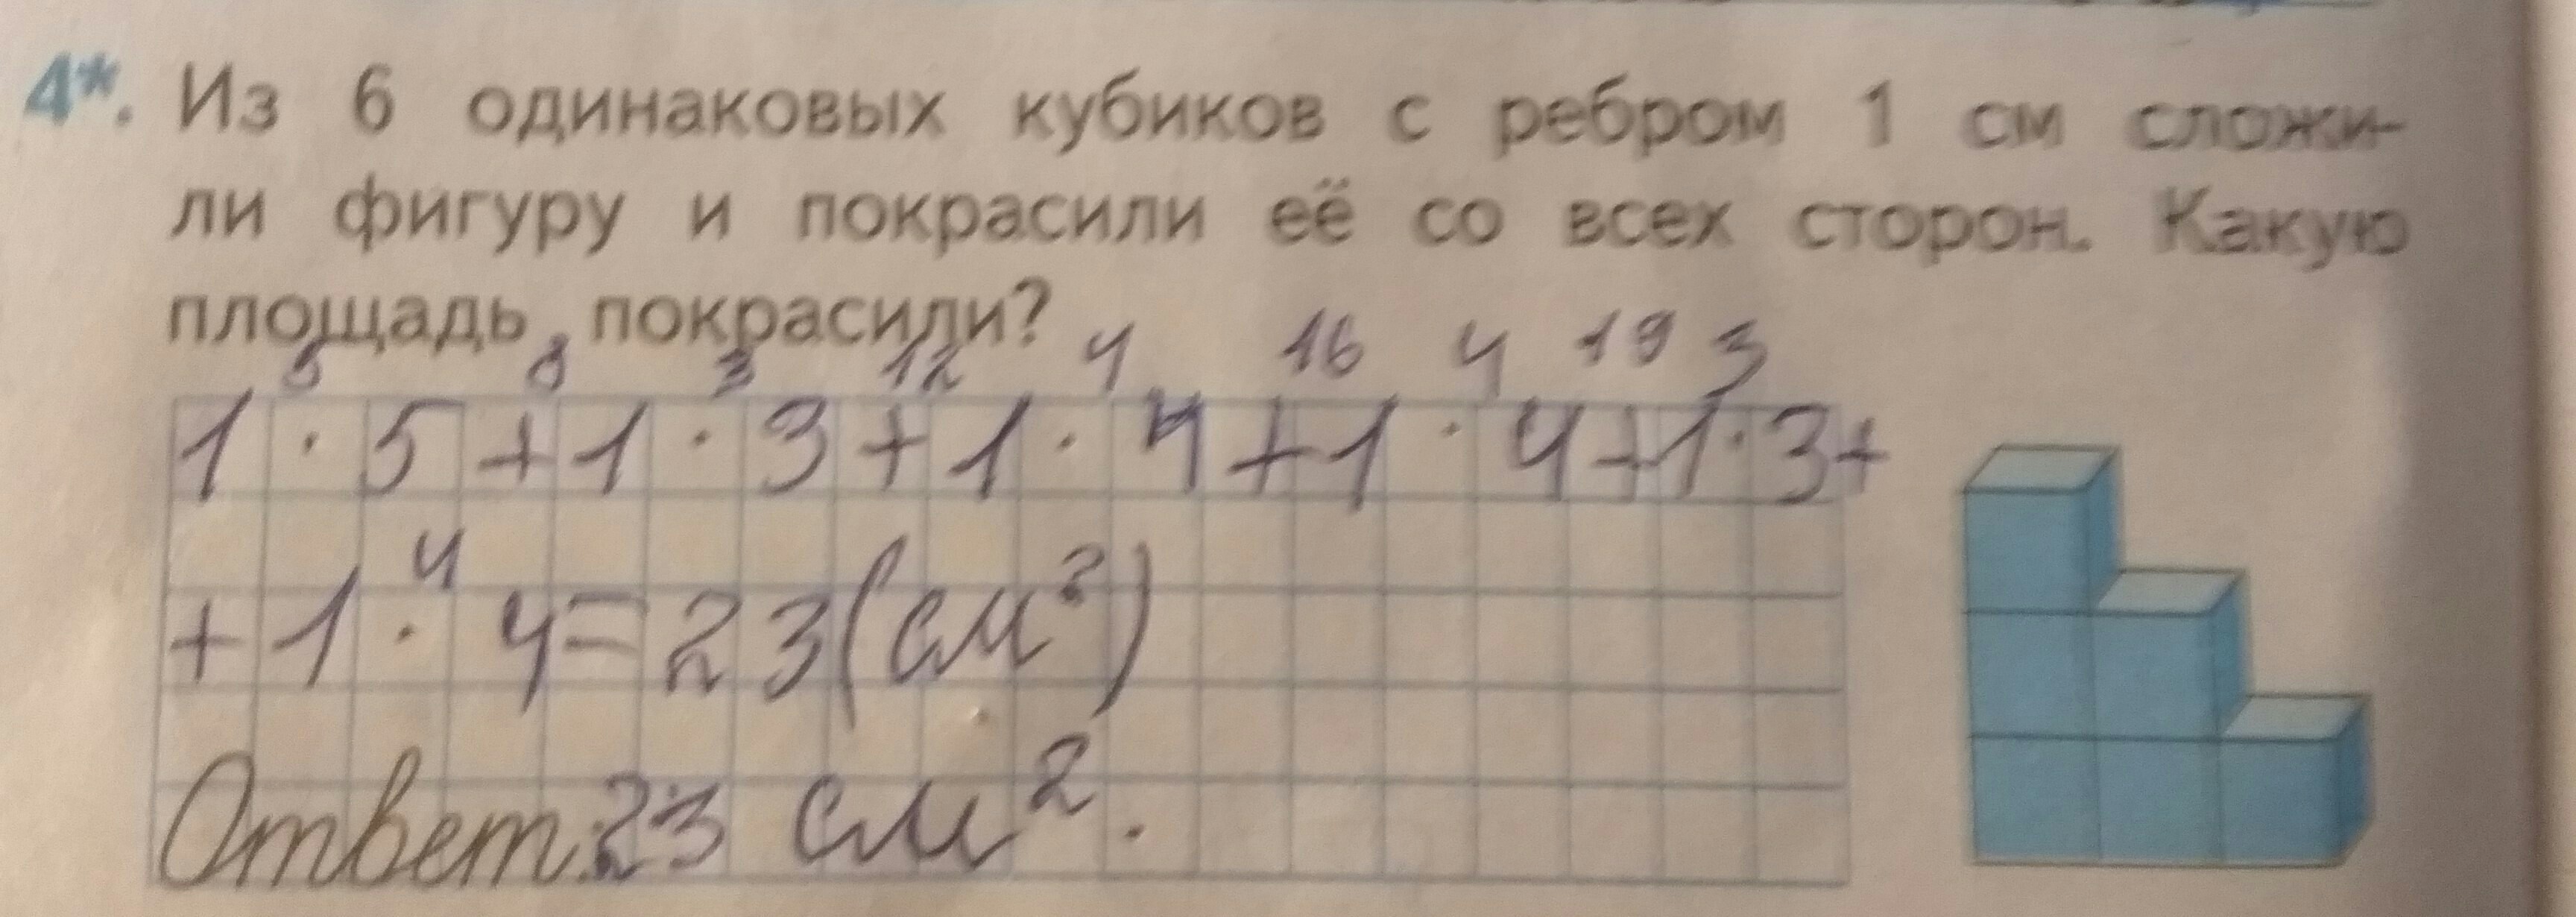 4*. Из 6 одинаковых кубиков с ребром 1 см сложи-
ли фигуру и покрасили её со всех сторон. Какую
площадь покрасили?
5 8 3 12 4 16 4 19 3
1 · 5 + 1 · 3 + 1 · 4 + 1 · 4 + 1 · 3 +
4
+ 1 · 4 = 23 (см²)
Ответ: 23 см².